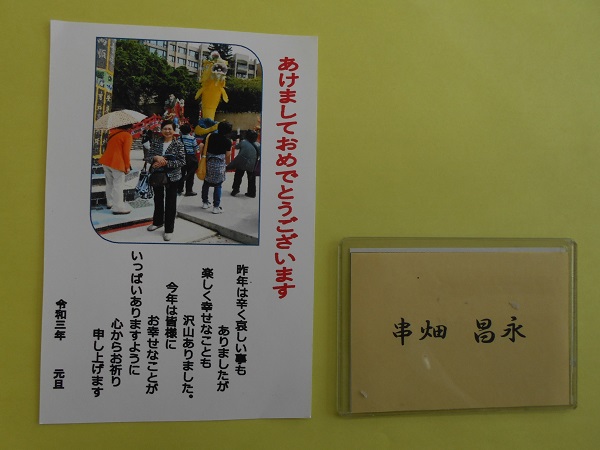 あけましておめでとうございます
昨年は辛く哀しい事も
ありましたが
楽しく幸せなことも
沢山ありました。
今年は皆様に
お幸せなことが
いっぱいありますように
心からお祈り
申し上げます
令和三年 元旦
串畑 昌永